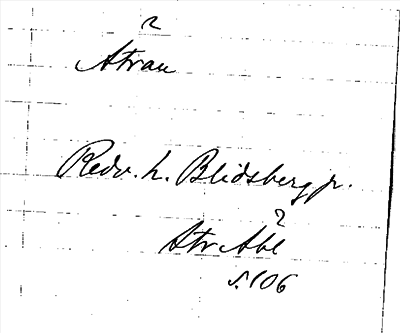 ?
Atrau
Redv. h. Blidsberg jr.
?
Atr Abl
s. 106